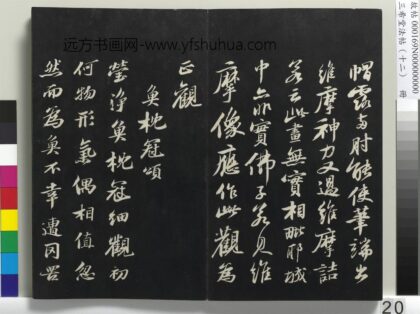 远方书画网-www.yfshuhua.com
三希堂法帖（十二） 冊
帽露兩肘能使筆端出
維摩神力又過維摩詰
若云此畫無實相毗耶城
中亦非實佛子若見維
摩像應作此觀為
正觀
魚枕冠頌
瑩淨魚枕冠細觀初
何物形氣偶相值忽
然而為魚不幸遭网罟
20